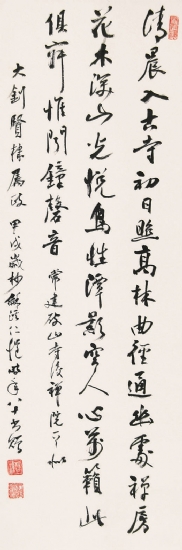 清晨入古寺初日照高林曲徑通幽處禪房
花木深山光悅鳥性潭影空人心萬籟此
俱寂惟聞鐘磬音 常建破山寺後禪院
大釗賢棣屬政 甲戌歲杪龢溪仁愷時年八十